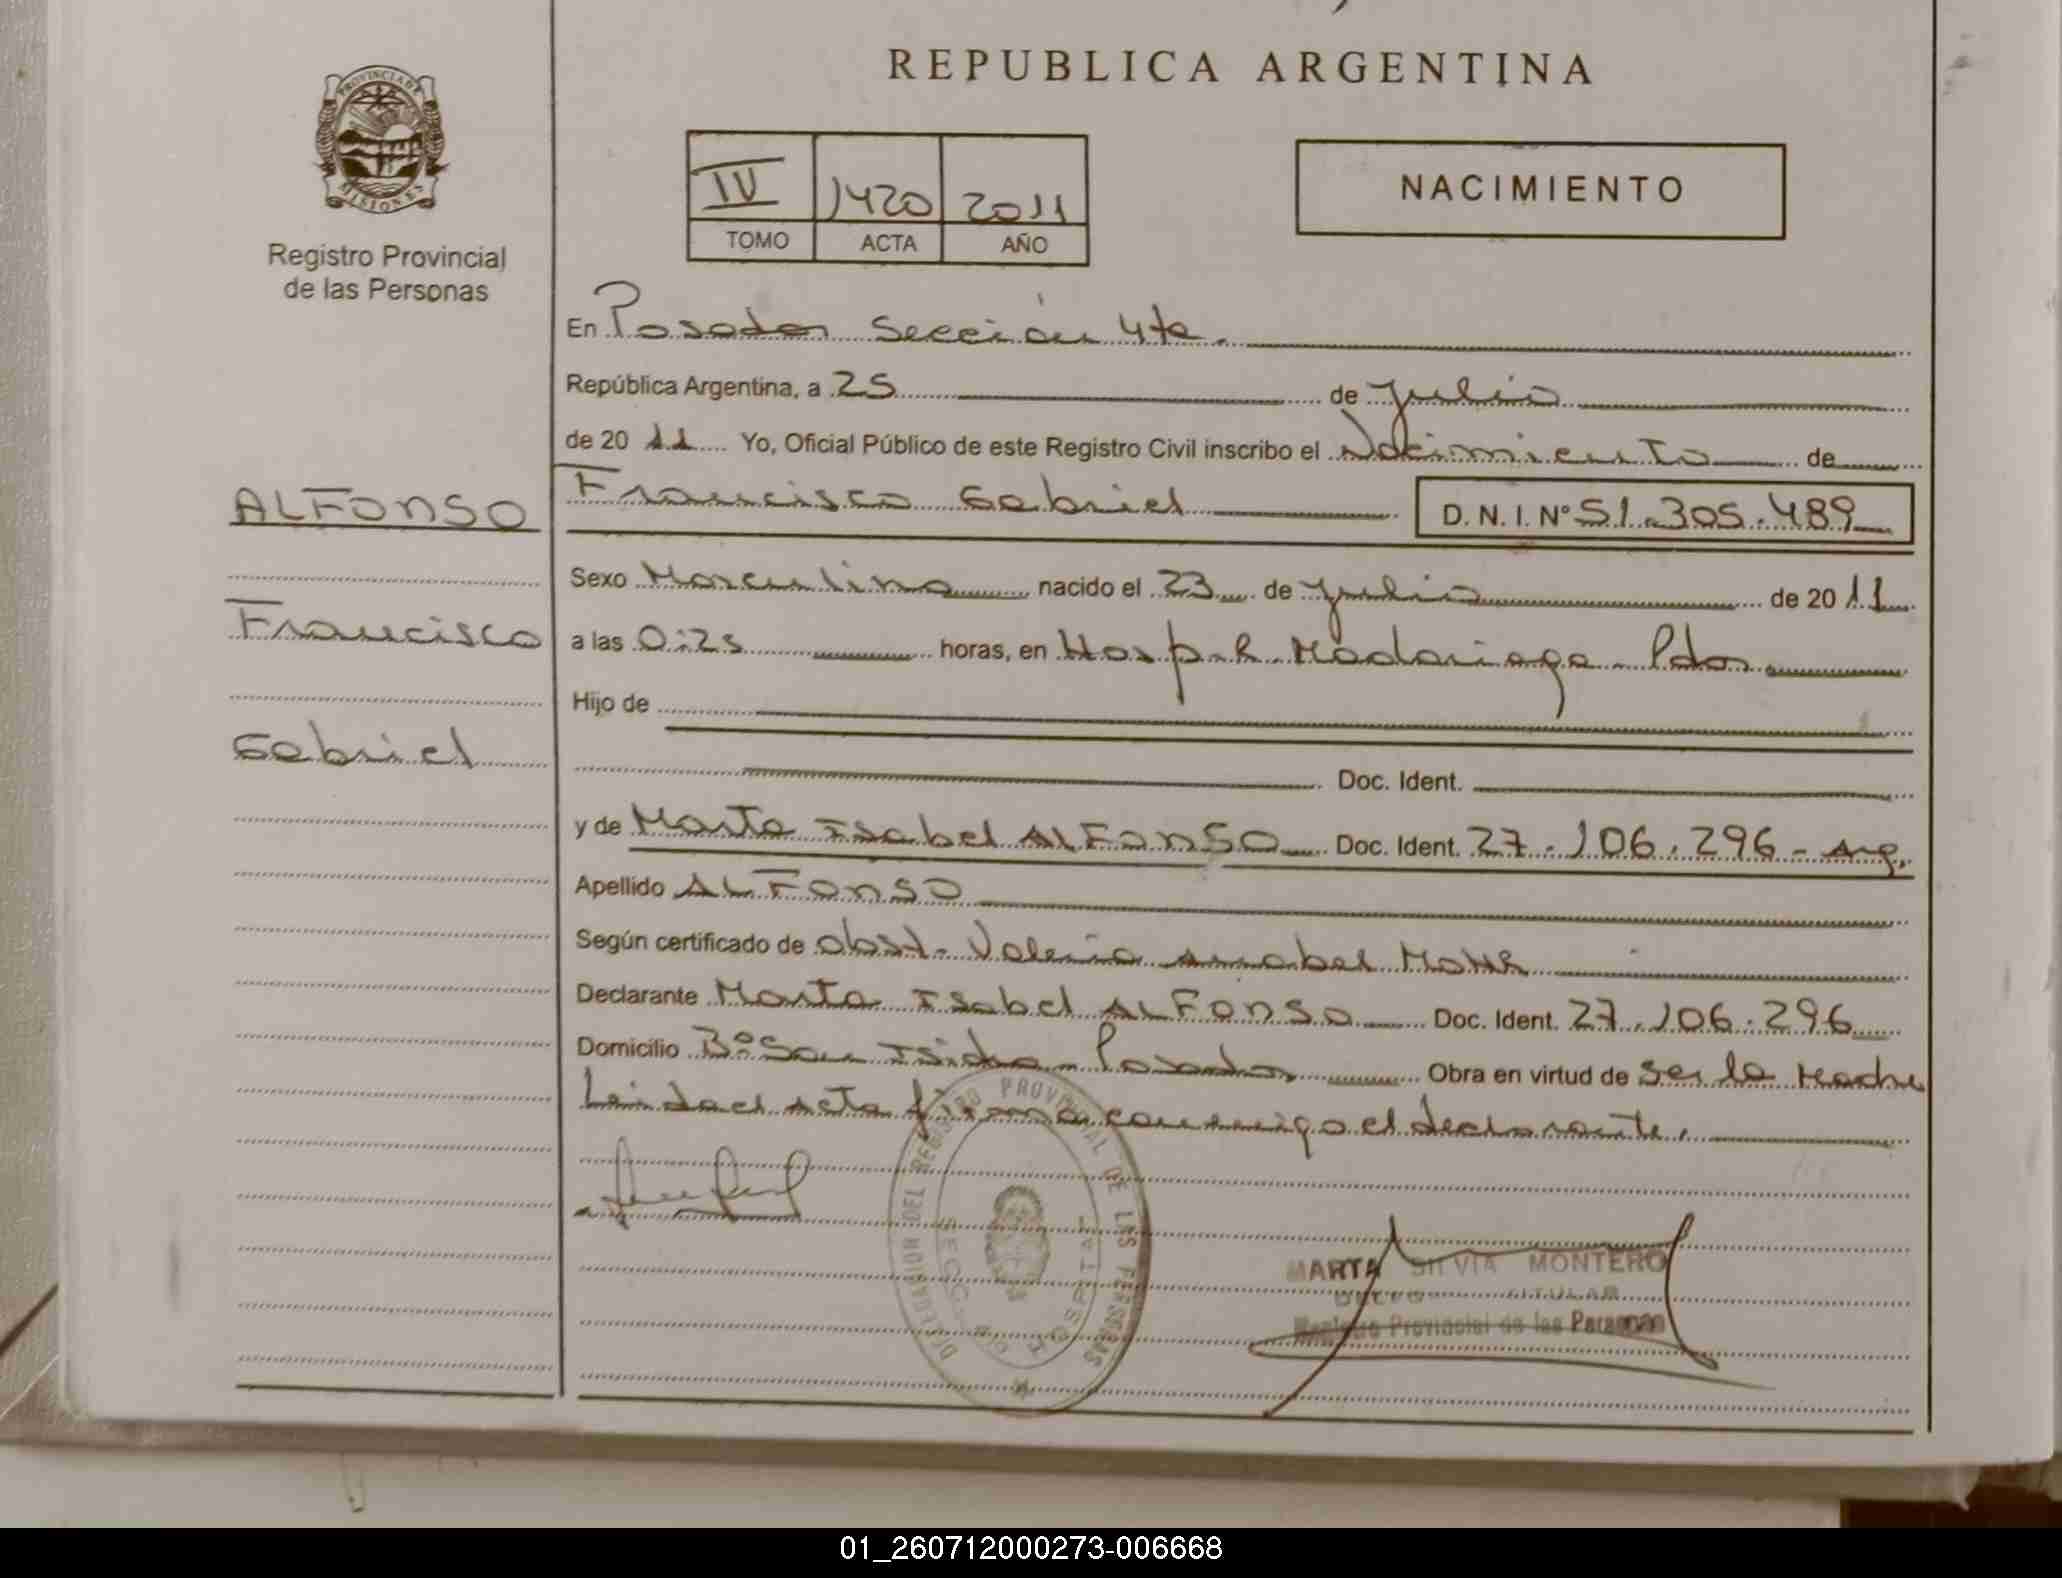 REPUBLICA ARGENTINA
PROVINCIA DE MISIONES
Registro Provincial
de las Personas
IV 1420 2011
TOMO ACTA AÑO
NACIMIENTO
En Posadas Sección 4ta.
República Argentina, a 25 de Julio
de 2011 Yo, Oficial Público de este Registro Civil inscribo el Nacimiento de
ALFONSO
Francisco
Gabriel
Francisco Gabriel D. N. I. Nº 51.305.489
Sexo Masculino nacido el 23 de Julio de 2011
a las 0:25 horas, en Hosp. R. Madariaga - Pdas
Hijo de
Doc. Ident.
y de Marta Isabel ALFONSO Doc. Ident. 27.106.296 - Arg.
Apellido ALFONSO
Según certificado de obst. Valeria Anabel
Declarante Marta Isabel ALFONSO Doc. Ident. 27.106.296
Domicilio Bº San Isidro - Posadas Obra en virtud de ser la Madre
Leida el acta firma conmigo el declarante.
DELEGACION DEL REGISTRO PROVINCIAL DE LAS PERSONAS
HOSPITAL
MARTA SILVIA MONTERO
TITULAR
Registro Provincial de las Personas
01_260712000273-006668